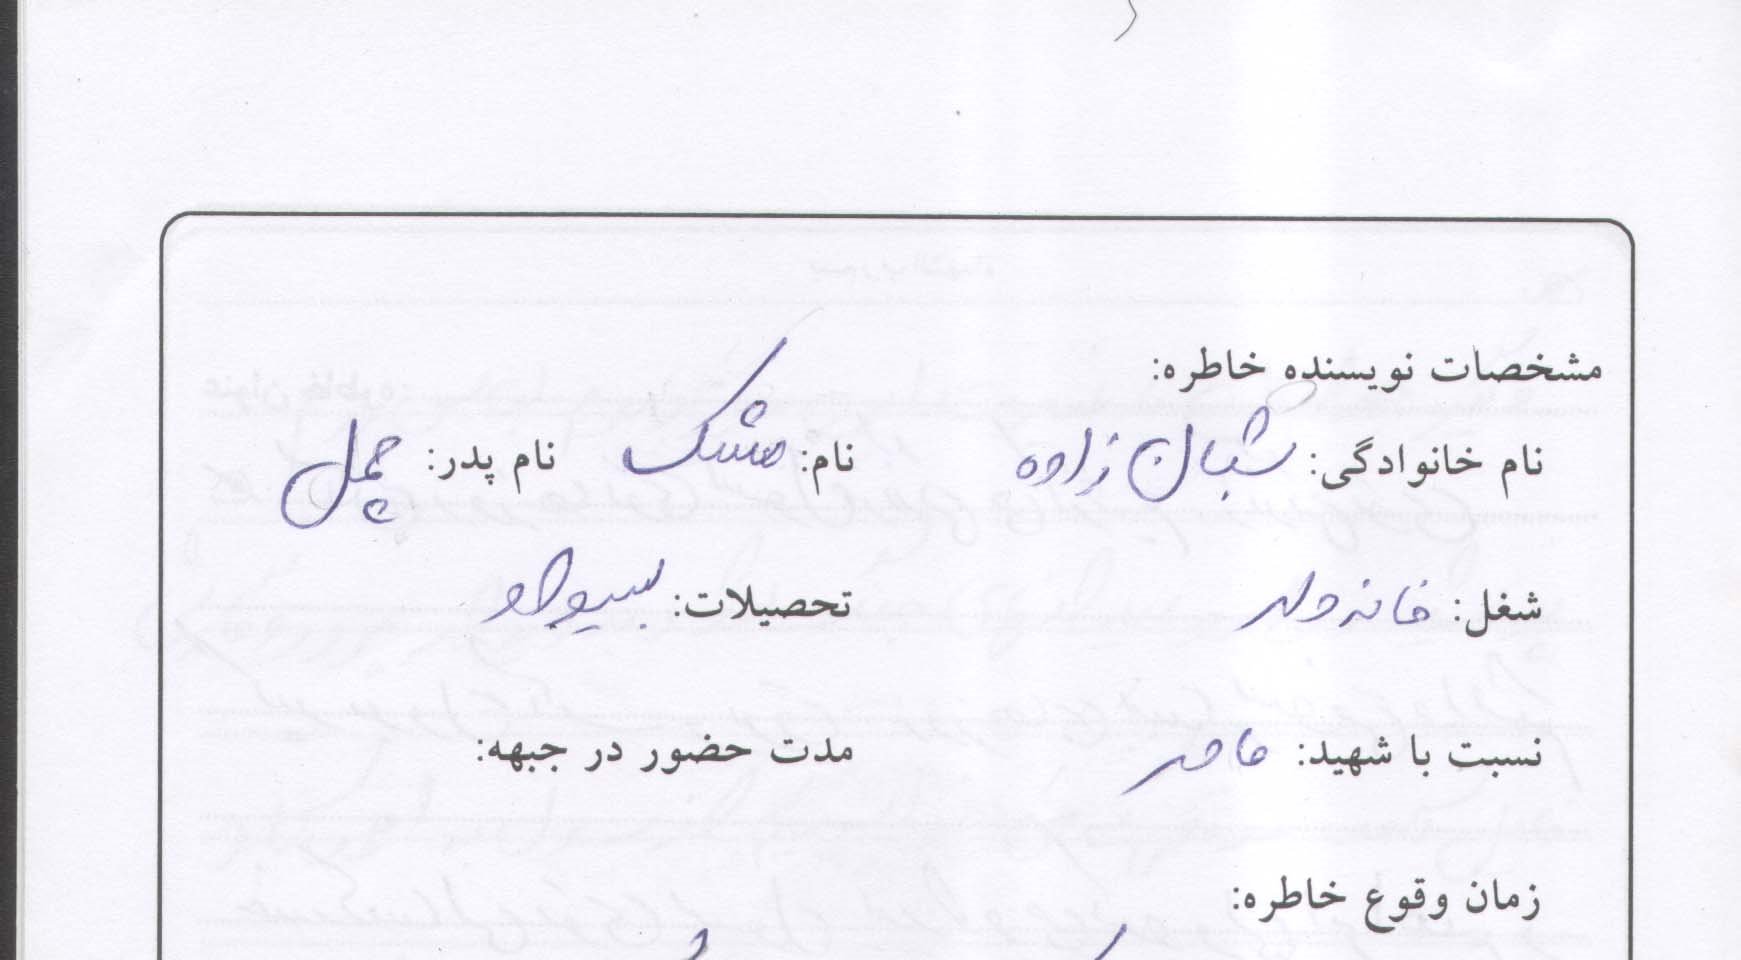 مشخصات نویسنده خاطره:
نام خانوادگی: شبان زاده نام: مشک نام پدر:
شغل: خانه دار تحصیلات: بیسواد
نسبت با شهید: مادر مدت حضور در جبهه:
زمان وقوع خاطره: